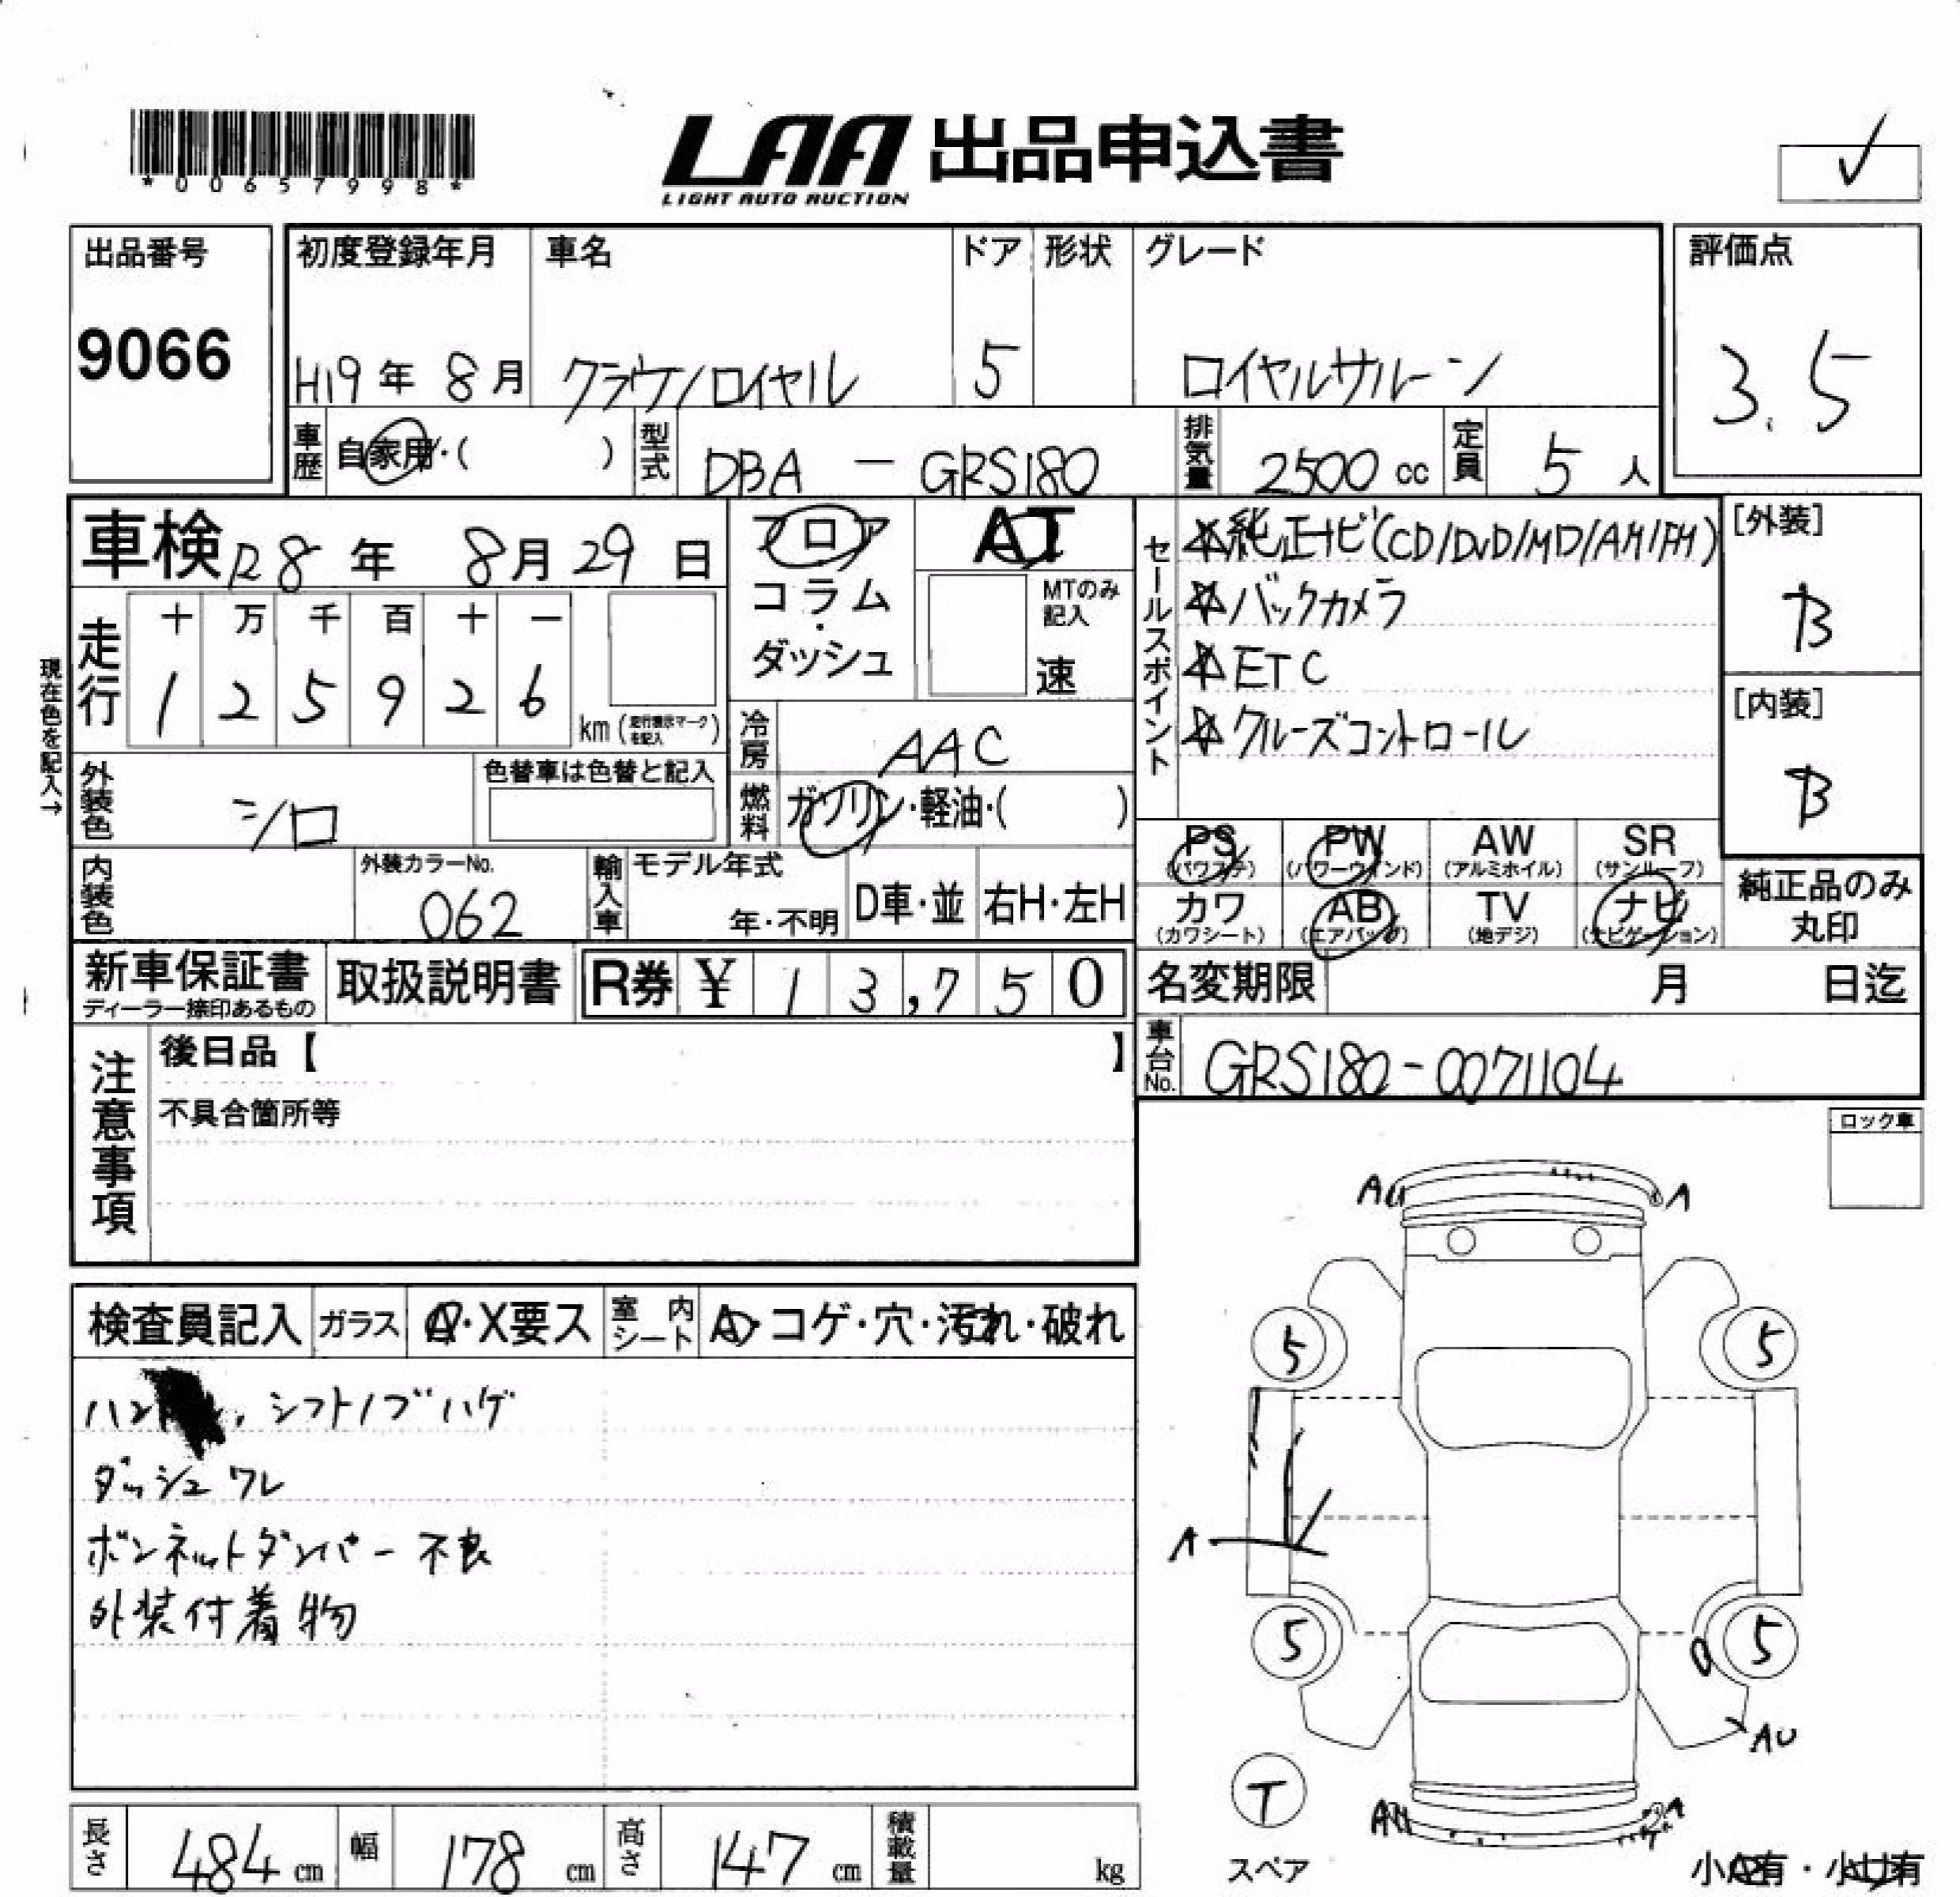 *00657998*
LAA 出品申込書
LIGHT AUTO AUCTION
✓
出品番号
9066
初度登録年月
H19年 8月
車名
クラウンロイヤル
ドア
5
形状
グレード
ロイヤルサルーン
評価点
3.5
車歴 自家用・( )
型式 DBA - GRS180
排気量 2500 cc
定員 5 人
車検 R8年 8月29日
フロア
コラム
・
ダッシュ
AT
MTのみ記入
速
セールスポイント
☆純正ナビ(CD/DVD/MD/AM/FM)
☆バックカメラ
☆ETC
☆クルーズコントロール
[外装]
B
[内装]
B
現在色を記入→
走行
十 万 千 百 十 一
1 2 5 9 2 6
km (走行表示マークを記入)
冷房 AAC
燃料 ガソリン・軽油・( )
外装色 シロ
色替車は色替と記入
内装色
外装カラーNo.
062
輸入車
モデル年式
年・不明
D車・並
右H・左H
PS (パワステ)
PW (パワーウインド)
AW (アルミホイル)
SR (サンルーフ)
カワ (カワシート)
AB (エアバッグ)
TV (地デジ)
ナビ (ナビゲーション)
純正品のみ
丸印
新車保証書
ディーラー捺印あるもの
取扱説明書
R券 ¥ 1 3,7 5 0
名変期限 月 日迄
車台No. GRS180-0071104
注意事項
後日品【 】
不具合箇所等
ロック車
検査員記入
ガラス
A・X要ス
室内シート
A・コゲ・穴・汚れ・破れ
シフトノブハゲ
ダッシュワレ
ボンネットダンパー不良
外装付着物
AU
A
5
5
A
5
5
AU
T
スペア
AU
A
小A有・小U有
長さ 484 cm
幅 178 cm
高さ 147 cm
積載量 kg